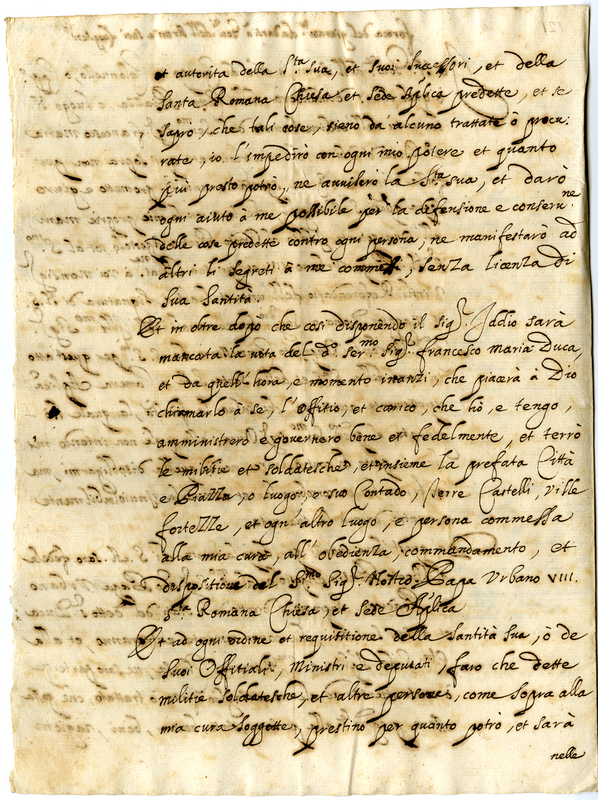 et autorita della S.ta sua, et suoi successori, et della
Santa Romana Chiesa et Sede Aplica predette, et se
saprò, che tali cose, sieno da alcuno trattate ò procu:
rate, io l'impedirò con ogni mio potere et quanto
più presto potrò, ne avvilero la S.ta sua, et darò
ogni aiuto à me possibile per la difensione e conseru.ne
delle cose predette contro ogni persona, ne manifestarò ad
altri li segreti à me commessi, senza licenza di
sua Santità.
Et in oltre dopò che cosi disponendo il sig.r Idio sarà
mancata la vita del d.o ser.mo sig.r francesco maria Duca,
et da quell'hora, e momento inanzi, che piacerà à Dio
chiamarlo à se, l'offitio, et carico, che hò, e tengo,
amministrerò e governaro bene et fedelmente, et terrò
le militie et soldatesche, et insieme la prefata Città
e Piazza, o luogo, o suo Contado, Terre Castelli, Ville
fortezze, et ogni altro luogo, e persona commessa
alla mia cura, all'obedienza, commendamento, et
despositione del S.mo Sig.r Nostro Papa Urbano VIII.
S.ta Romana Chiesa, et Sede Aplica
Et ad ogni ordine et requititione della santità sua, ò de
suoi Offitiali, Ministri e deputati, faro che dette
militie soldatesche, et altre persone, come sopra alla
mia cura soggette, prestino per quanto potrò, et sarà
nelle